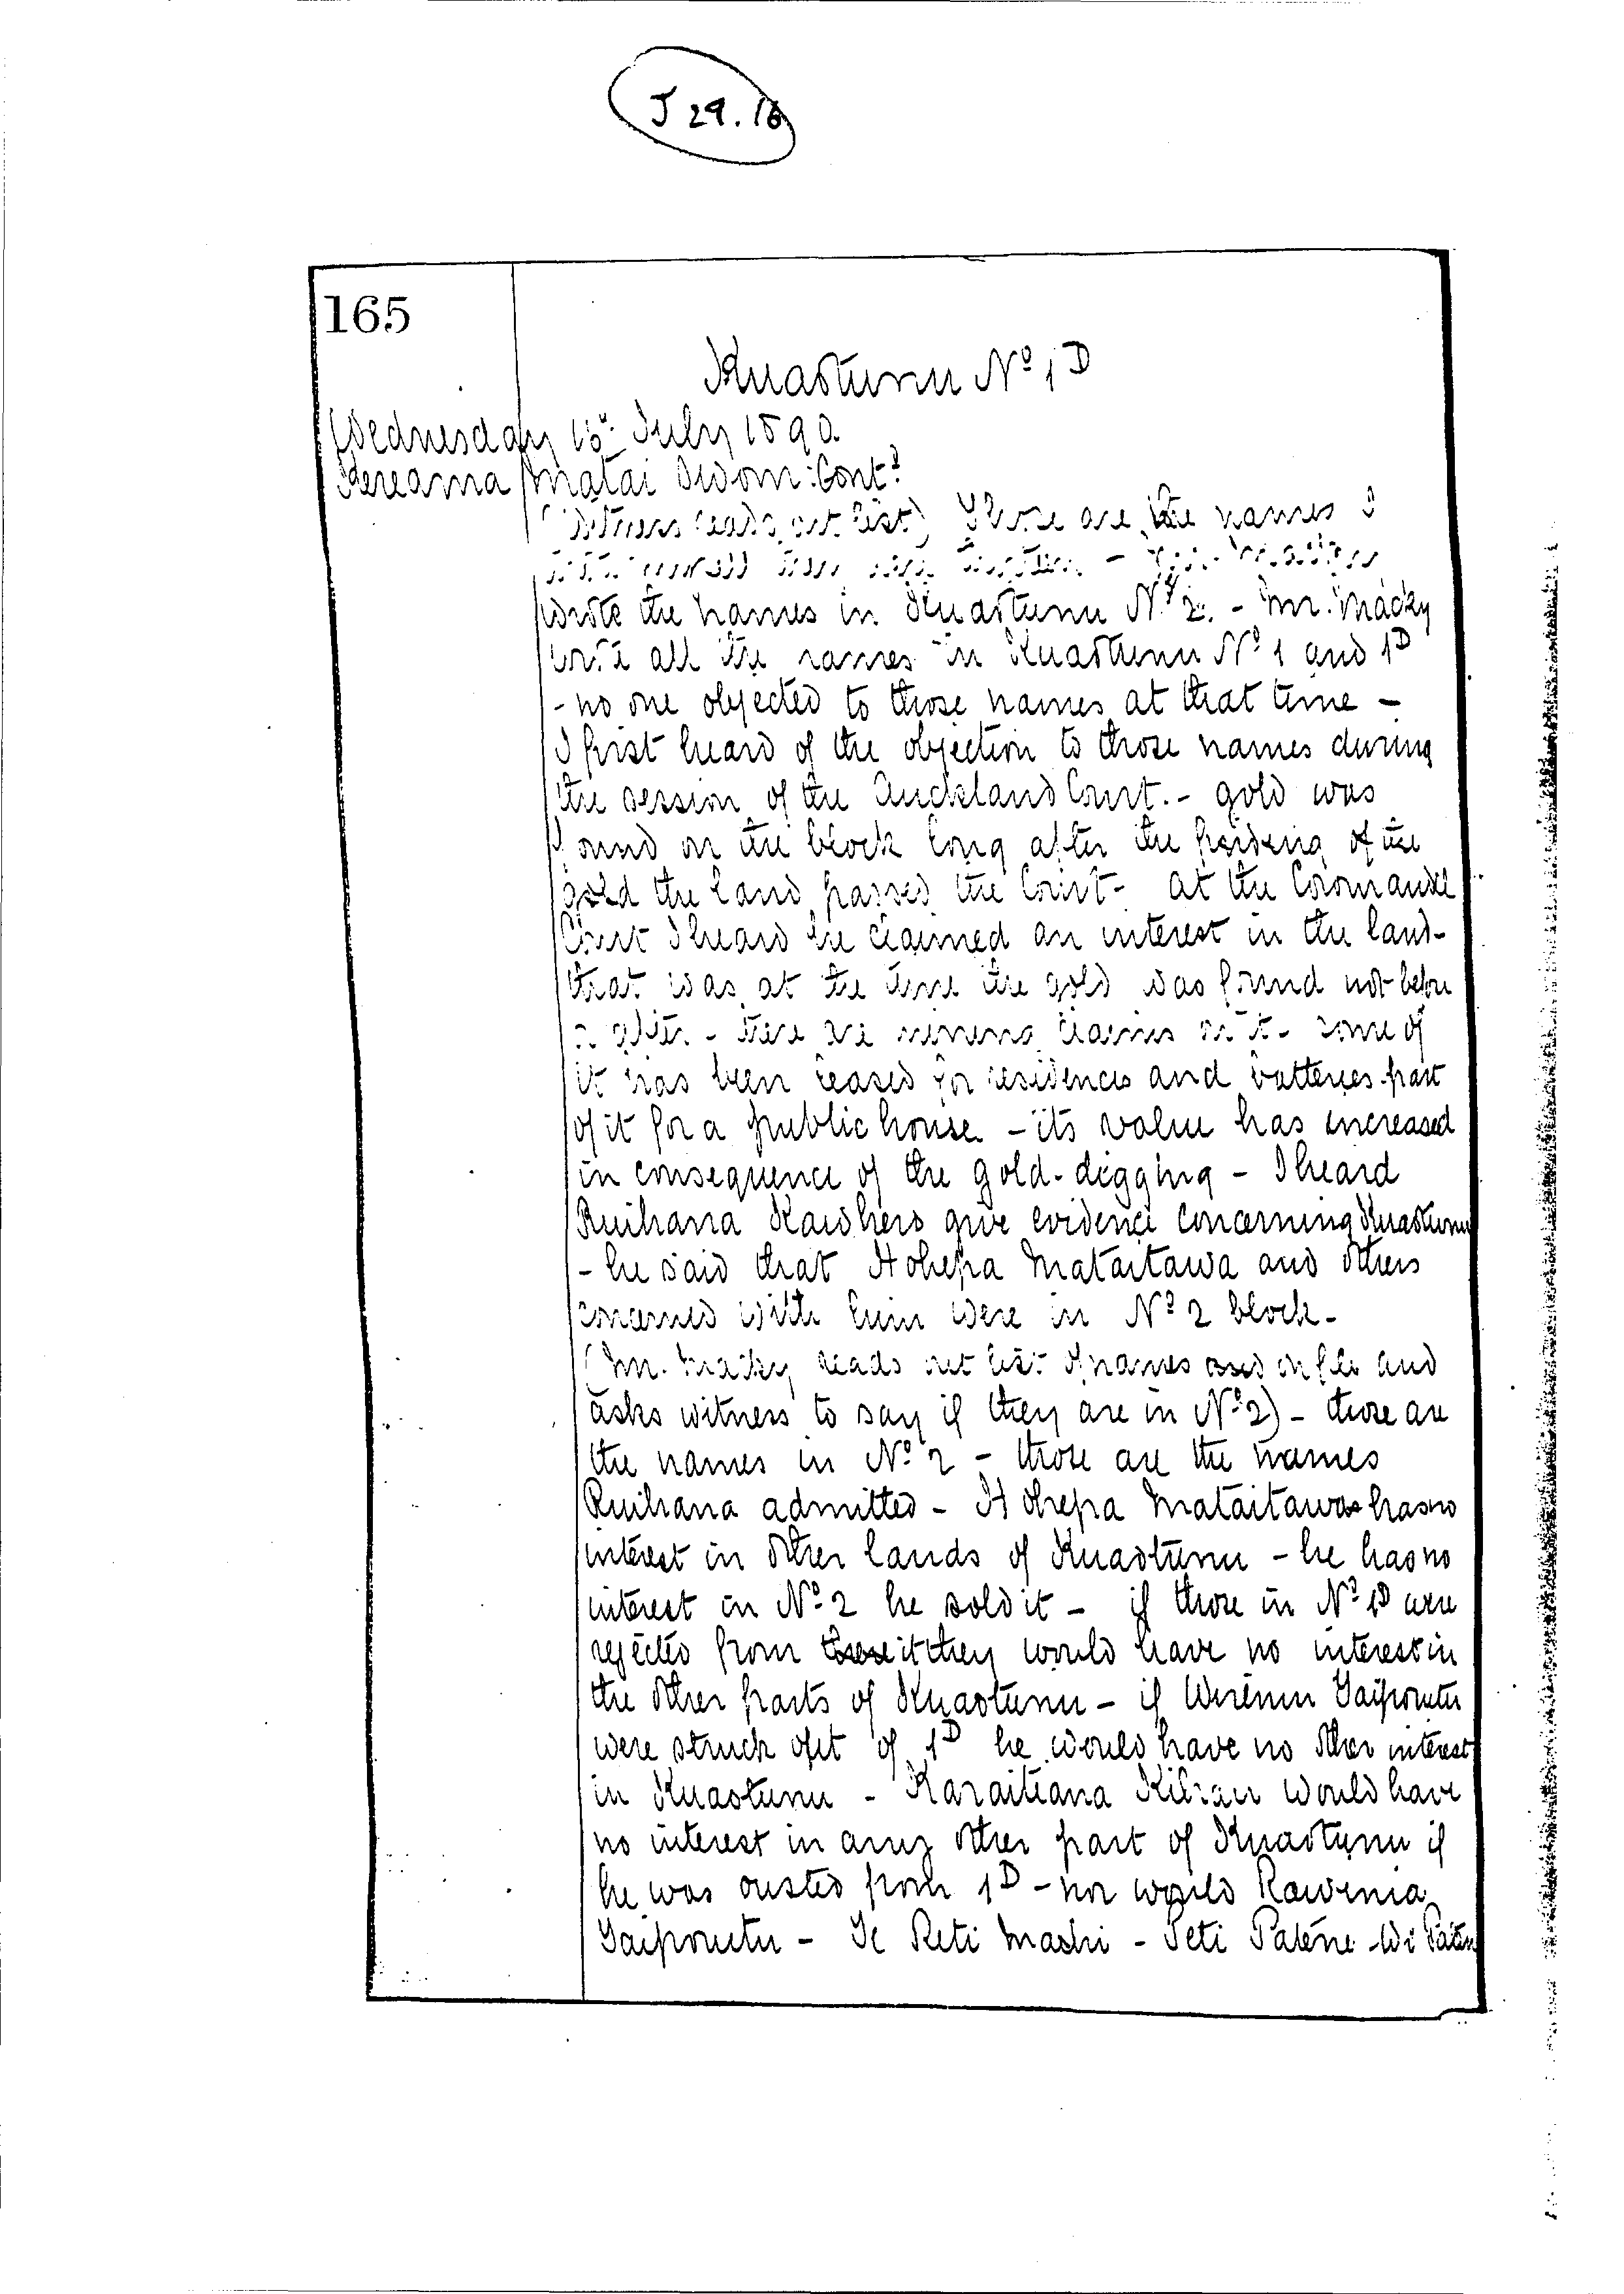 J 29.16
165
Kuaotunu No 1D
Wednesday 16th July 1890
Kereama Matai Sworn: Cont.d
(Witness reads out list) These are the names I
wrote the names in Kuaotunu No 2. - Mr. Macky
wrote all the names in Kuaotunu No 1 and 1D
- no one objected to those names at that time -
I first heard of the objection to those names during
the session of the Auckland Court. - gold was
found on the block long after the of the
the land passed the Court - at the Coromandel
Court I heard he claimed an interest in the land -
that was at the time the gold was found not before
after. - there are mining claims on it - some of
it has been leased for residences and batteries part
of it for a public house - its value has increased
in consequence of the gold-digging - I heard
Ruihana Kawhero give evidence concerning Kuaotunu
- he said that Hohepa Mataitawa and others
concerned with him were in No 2 block -
(Mr. Macky reads out list of names and
asks witness to say if they are in No 2) - those are
the names in No 2 - those are the names
Ruihana admitted - Hohepa Mataitawa has no
interest in other lands of Kuaotunu - he has no
interest in No 2 he sold it - if those in No 1D were
rejected from it they would have no interest in
the other parts of Kuaotunu - if Wiremu Taipourutu
were struck out of 1D he would have no other interest
in Kuaotunu - Karaitiana Kihau would have
no interest in any other part of Kuaotunu if
he was ousted from 1D - nor would Rawinia
Taipourutu - Te Reti - Peti Patene - Wi Patene